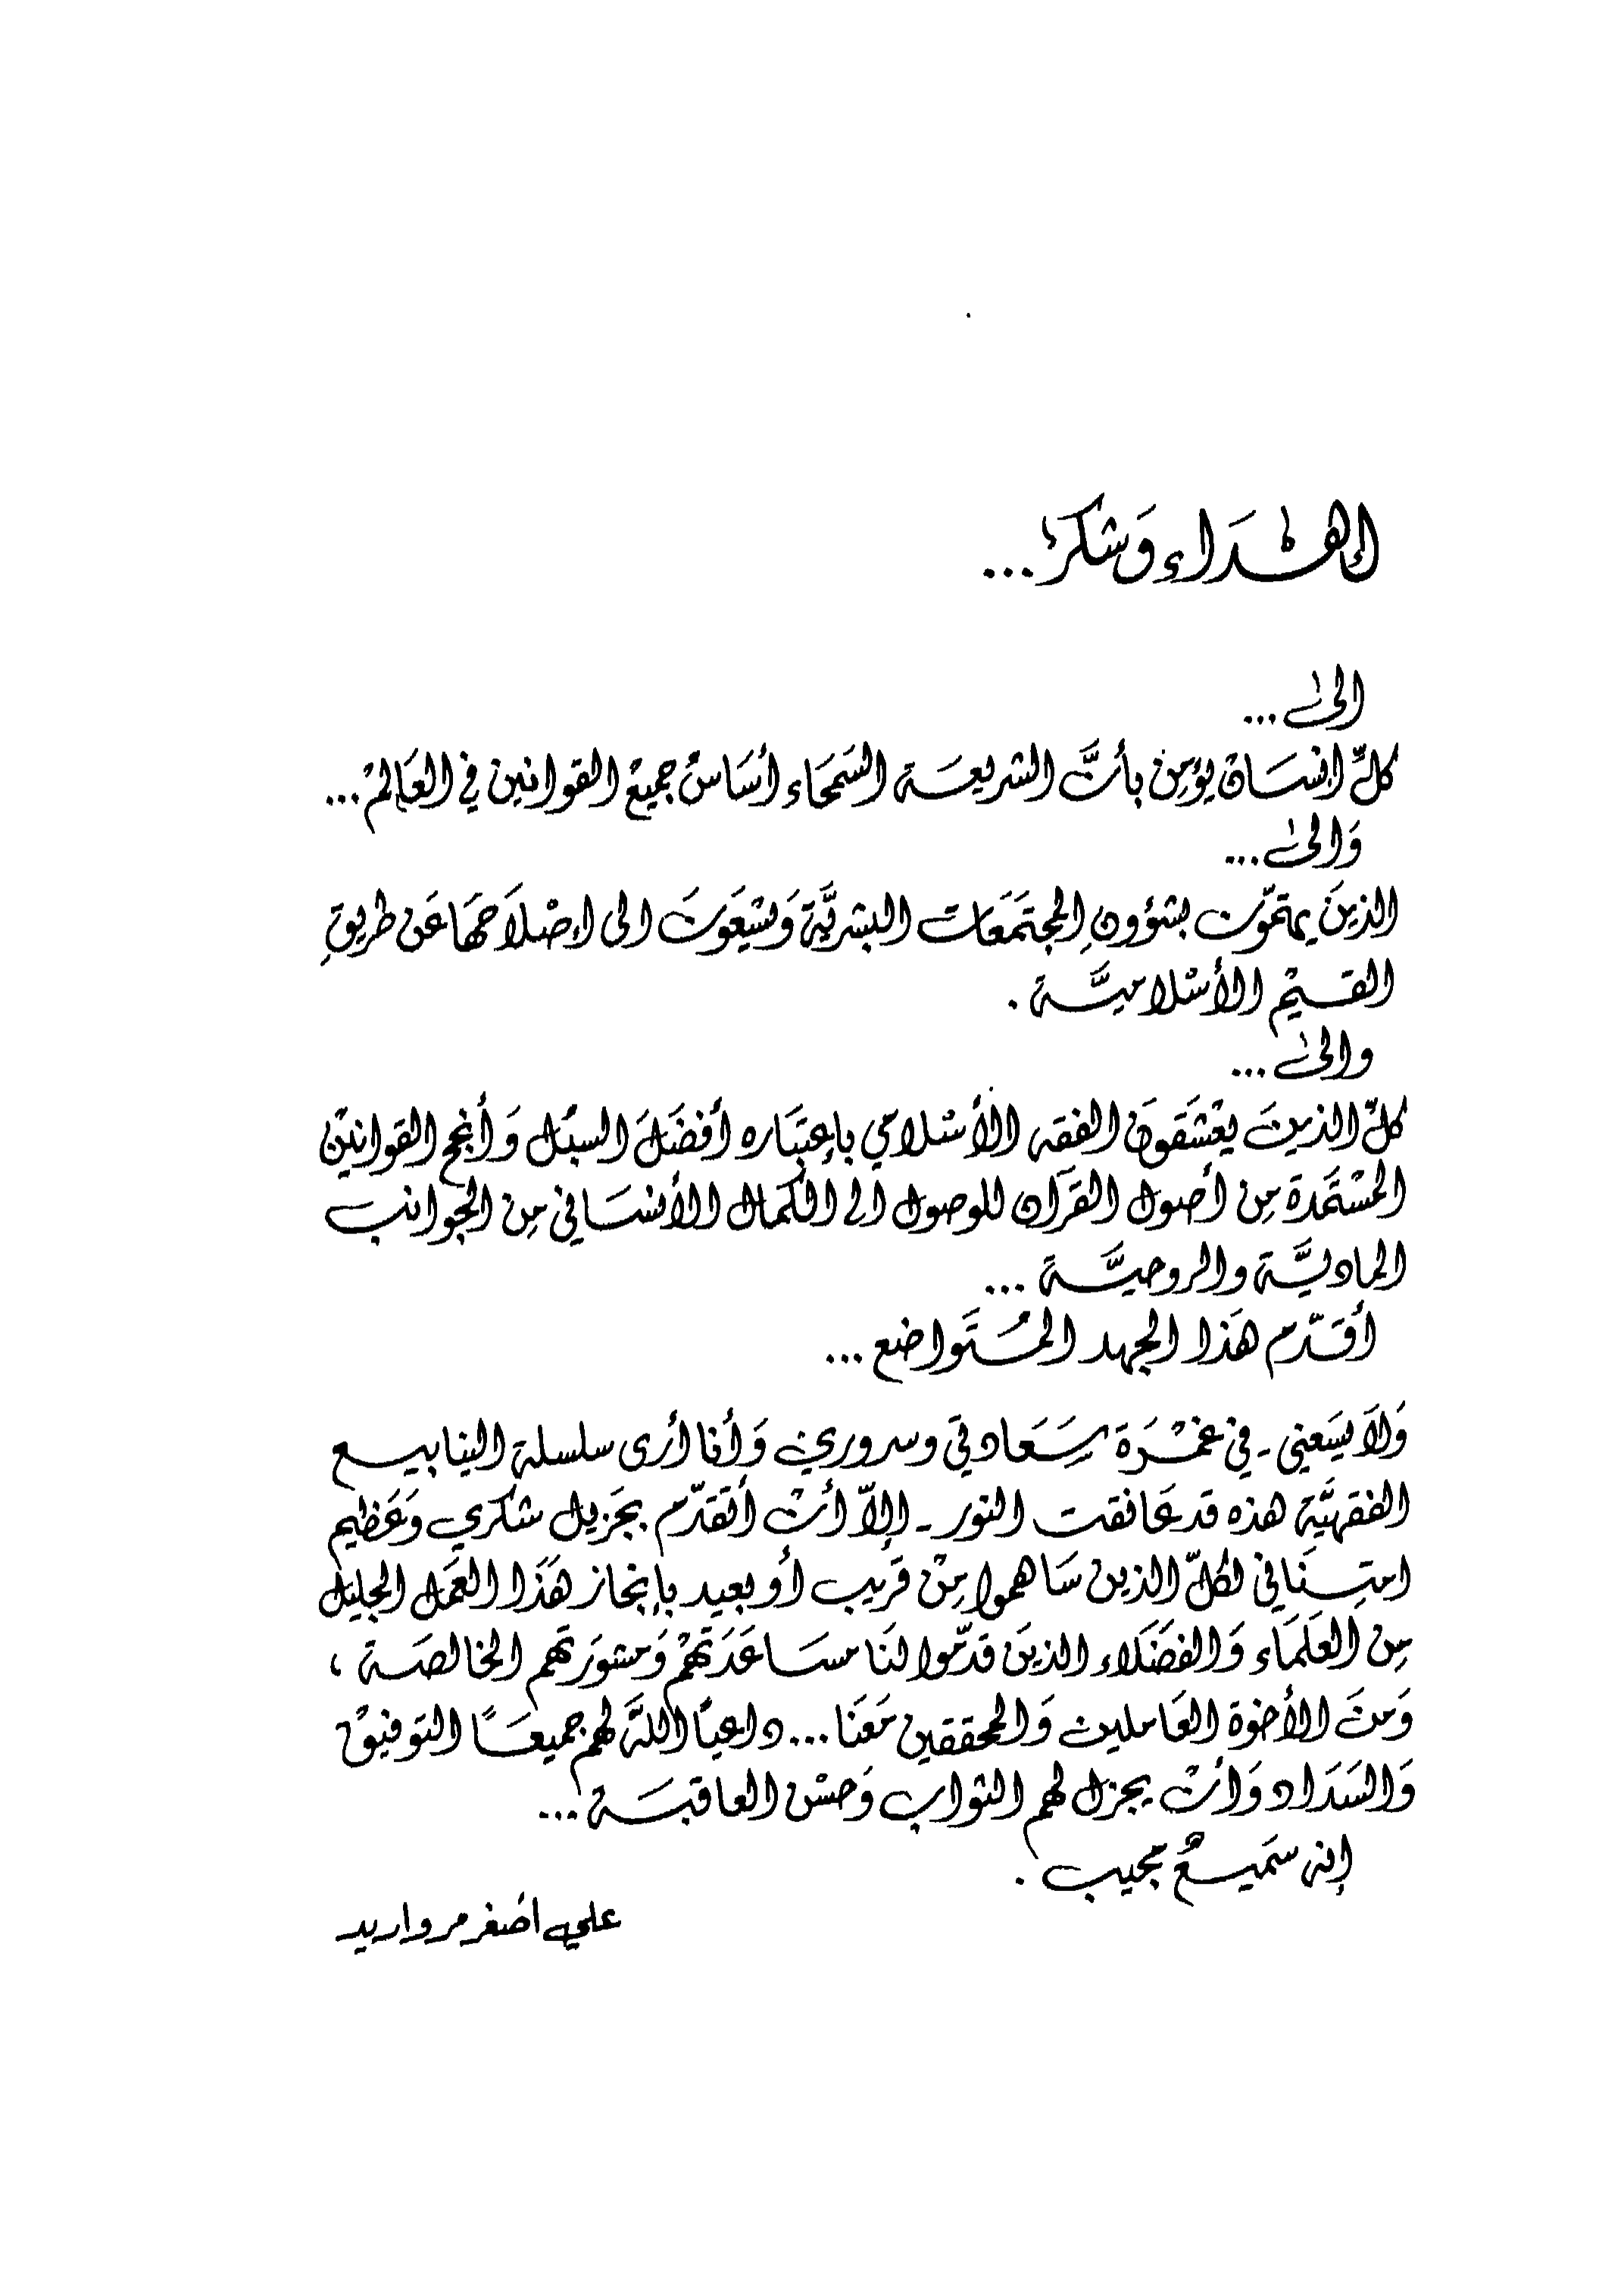 إهداء وشكر...
الى...
كلّ انسان يؤمِن بأنَّ الشريعة السَمحَاء أسَاسُ جميع القوانين في العَالم...
وَالى...
الذينَ يهتمّون بشؤونِ المجتَمعَات البشريَّة وَيسْعَونَ الى إصْلاَحهَا عَن طريقِ
القيم الأسْلاميَّة .
والى...
كلّ الذينَ يعْشَقونَ الفقه الأسْلامي بإعتبَاره أفضَلَ السبُل وَأنجح القوانين
المسْتَمدة مِن أصول القرآن للوصول الى الكمال الأنسَاني مِن الجوانب
الماديَّة والروحيَّة ...
أقدّم هَذا الجهد المُتَواضع ...
وَلاَ يسَعني - في غمْرَة سَعَادتي وسروري وَأنا أرى سلسلة الينابيع
الفقهيَّة هذه قد عَانقت النور - إلاّ أنْ أتقدّم بجَزيل شكري وَعَظيم
امتِنَاني لكلّ الذين سَاهموا مِنْ قَريب أو بعيد بإنجاز هَذا العَمل الجليل
مِن العلَمَاء وَالفضَلاء الذينَ قدّموا لنَا مسَاعَدَتهمْ وَمشورَتهم الخالصَة ،
وَمنَ الأخوة العَاملين وَالمحققين مَعَنَا... داعيًا اللهَ لهم جميعًا التوفيق
وَالسَدَاد وَأنْ يجزل لهم الثواب وَحسْن العاقبَة ...
إنه سَميعٌ مجيب .
علي اصغر مرواريد